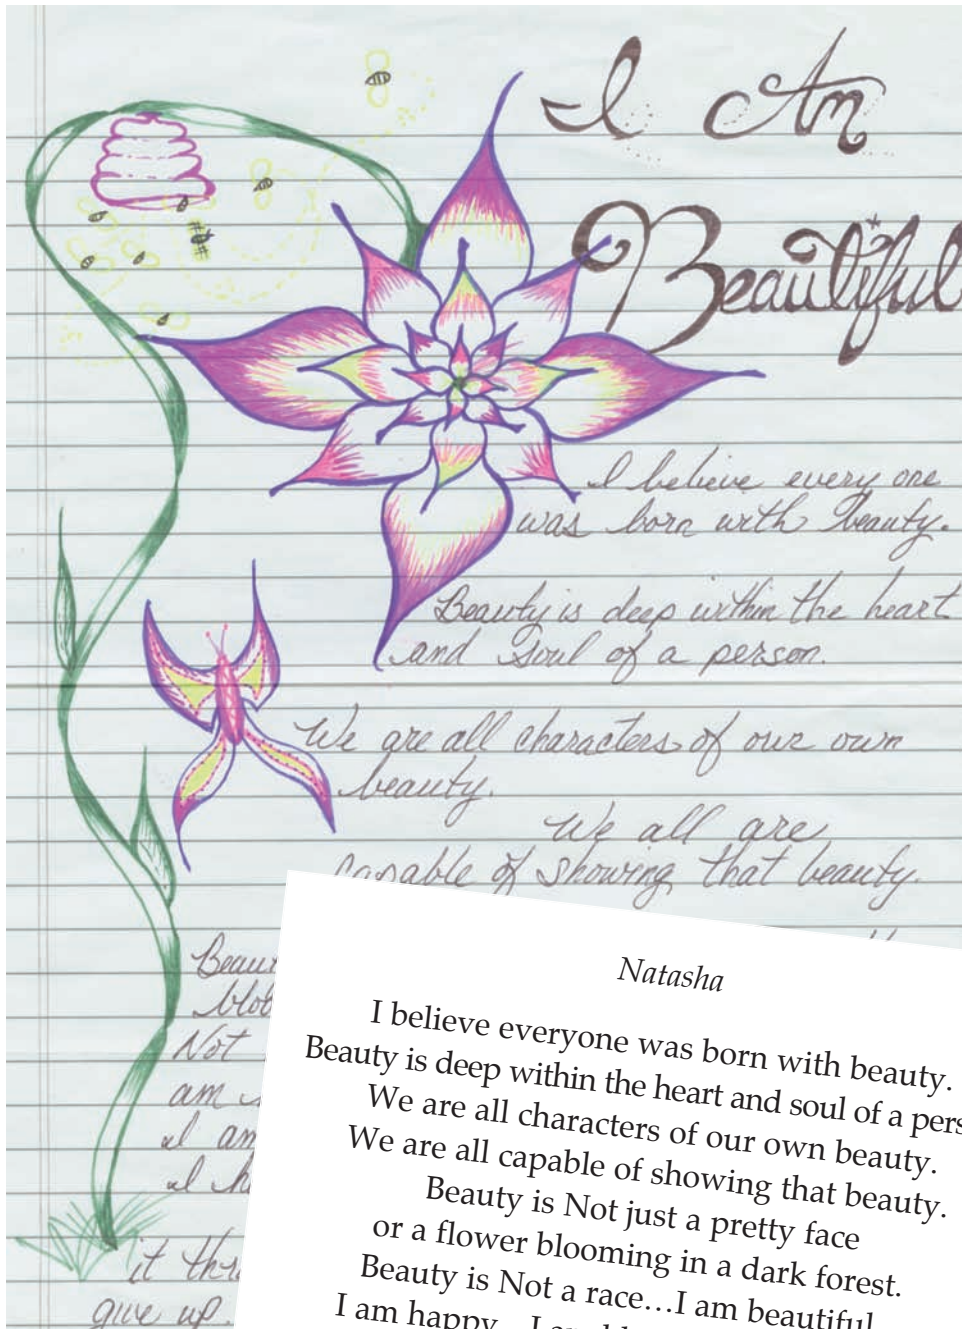 I Am
Beautiful
I believe every one
was born with beauty.
Beauty is deep within the heart
and soul of a person.
We are all characters of our own
beauty.
We all are
capable of showing that beauty.
Not
am
I am
I
it
give up.
Natasha
I believe everyone was born with beauty.
Beauty is deep within the heart and soul of a
We are all characters of our own beauty.
We are all capable of showing that beauty.
Beauty is Not just a pretty face
or a flower blooming in a dark forest.
Beauty is Not a race...I am beautiful
I am happy